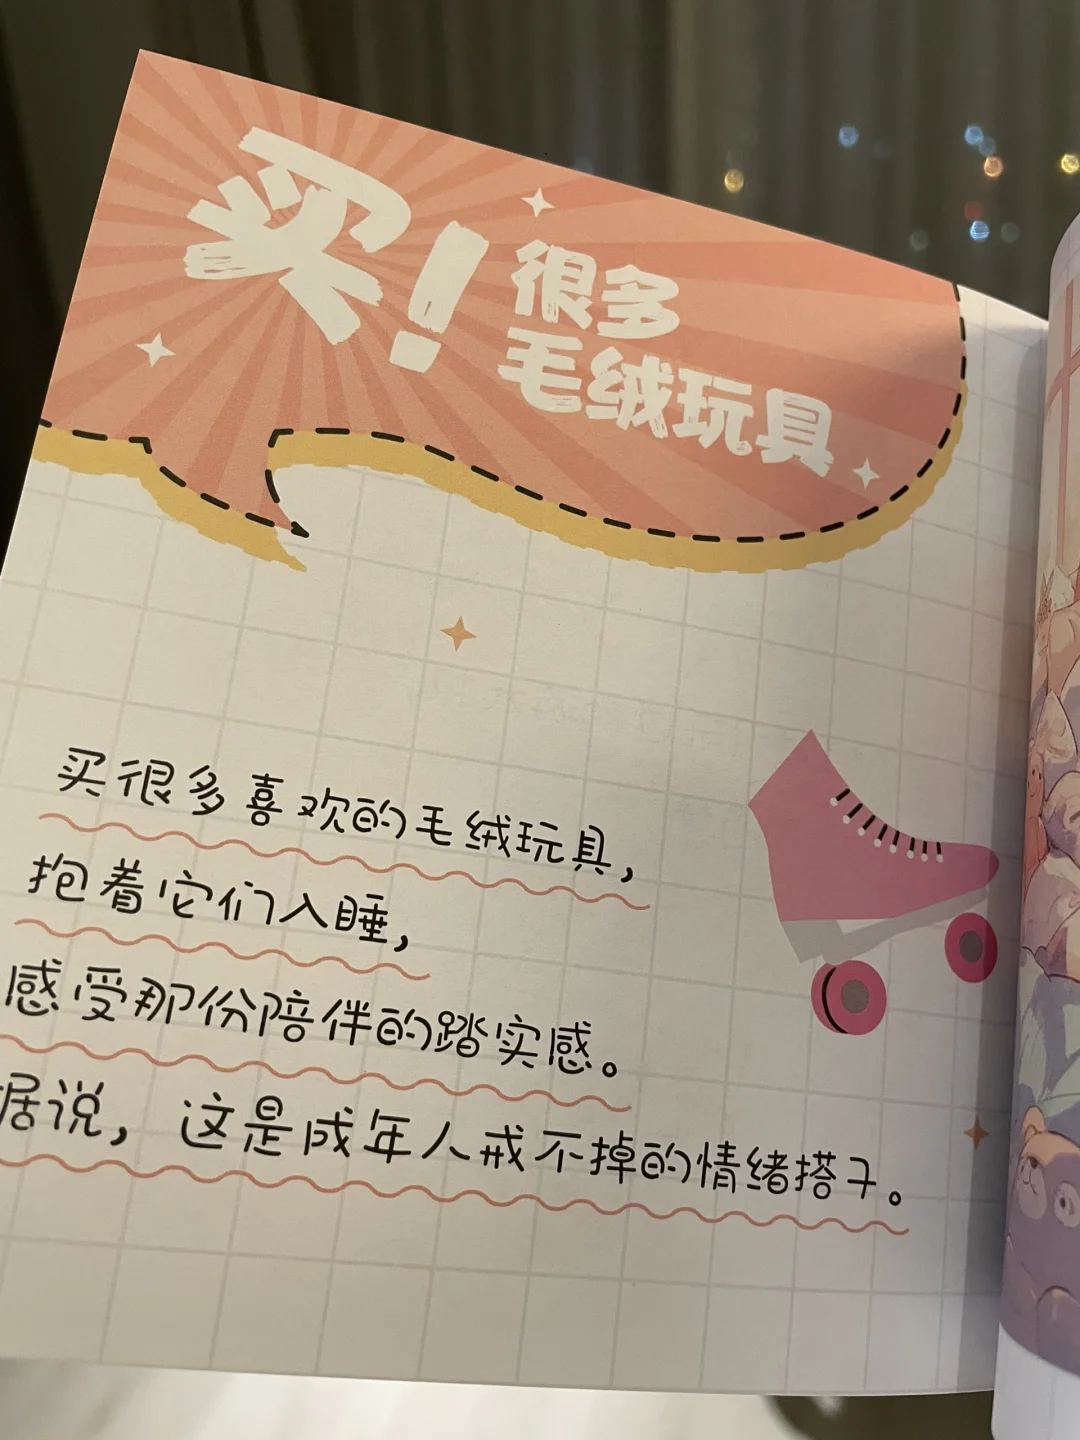 买!
很多
毛绒玩具
买很多喜欢的毛绒玩具,
抱着它们入睡,
感受那份陪伴的踏实感。
据说,这是成年人戒不掉的情绪搭子。